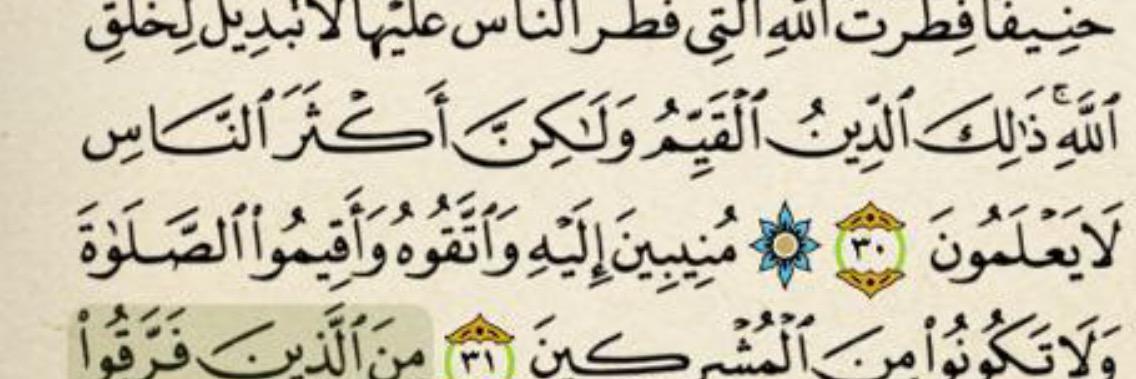 حَنِيفًا فِطْرَتَ ٱللَّهِ ٱلَّتِى فَطَرَ ٱلنَّاسَ عَلَيْهَا لَا تَبْدِيلَ لِخَلْقِ
ٱللَّهِ ۚ ذَٰلِكَ ٱلدِّينُ ٱلْقَيِّمُ وَلَٰكِنَّ أَكْثَرَ ٱلنَّاسِ
لَا يَعْلَمُونَ ٣٠ ۞ مُنِيبِينَ إِلَيْهِ وَٱتَّقُوهُ وَأَقِيمُوا۟ ٱلصَّلَوٰةَ
وَلَا تَكُونُوا۟ مِنَ ٱلْمُشْرِكِينَ ٣١ مِنَ ٱلَّذِينَ فَرَّقُوا۟